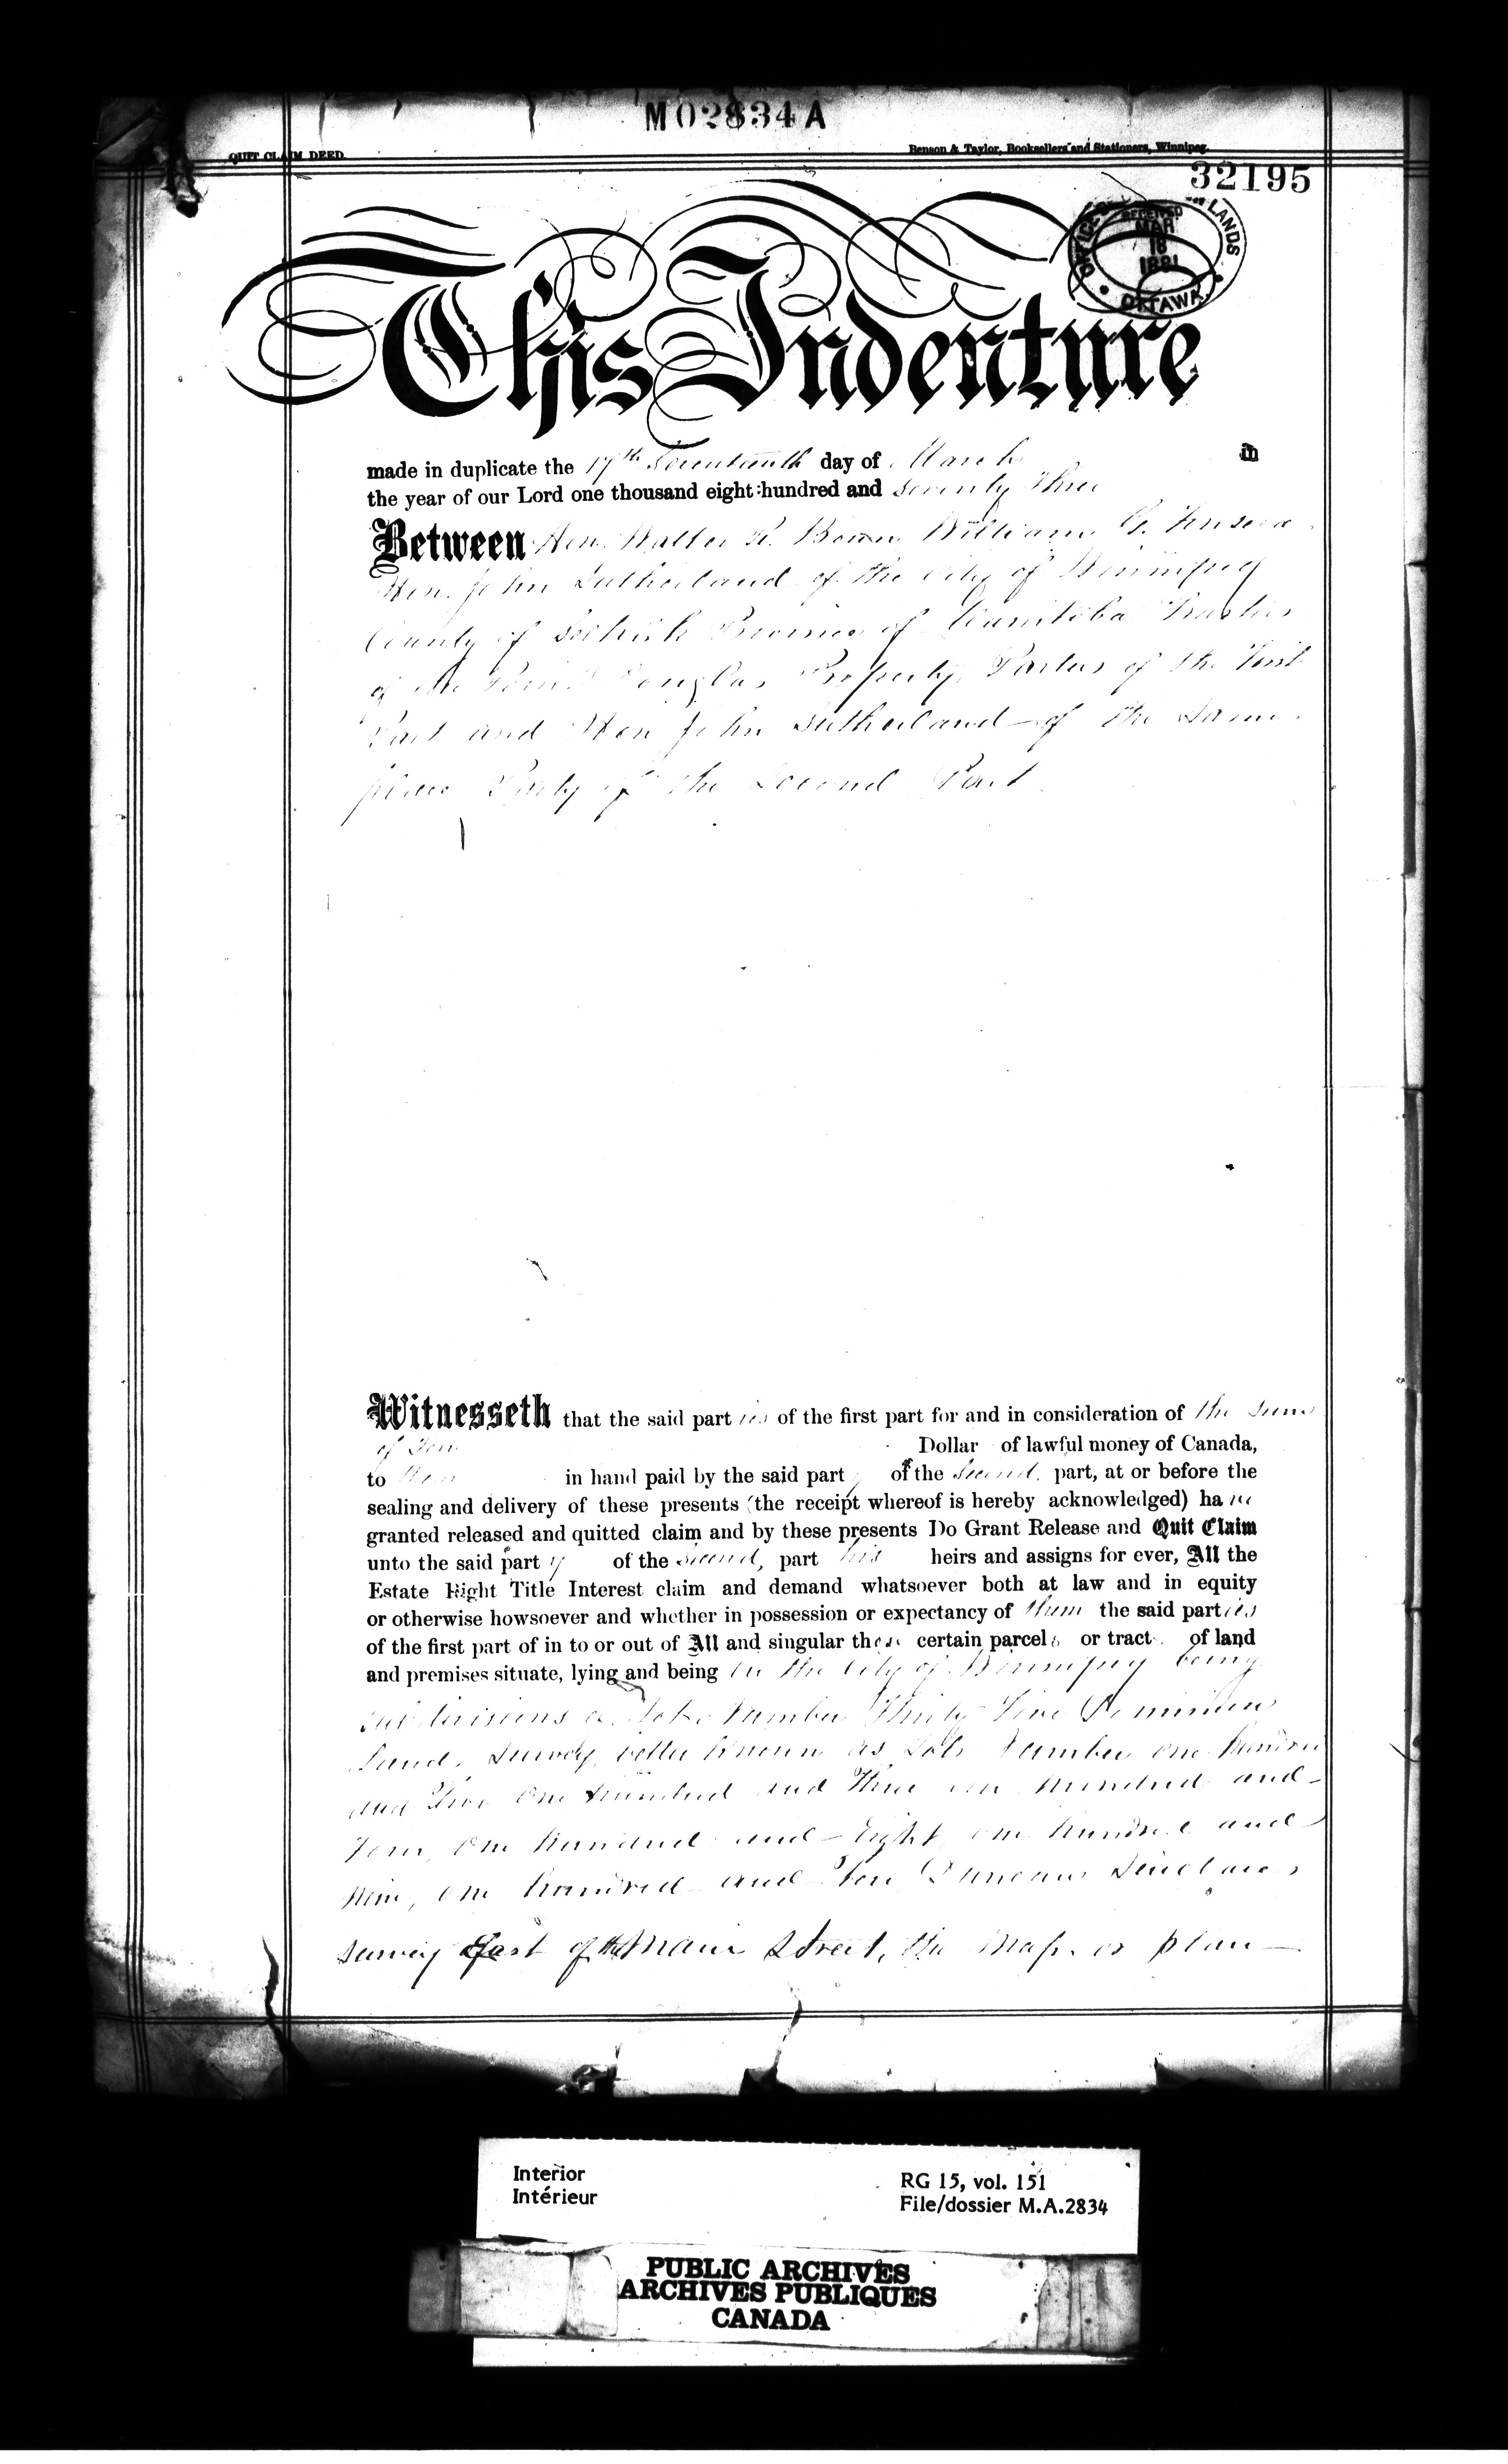 M02834A
QUIT CLAIM DEED.
Benson & Taylor, Booksellers and Stationers, Winnipeg.
32195
OFFICE LANDS
RECEIVED
MAR
18
1881
OTTAWA
This Indenture
made in duplicate the 17th Seventeenth day of March in
the year of our Lord one thousand eight hundred and Seventy Three
Between Hon. Walter R. Bown William G. Fonseca
Hon. John Sutherland of the City of Winnipeg
County of Selkirk Province of Manitoba Trustees
of the Point Douglas Property Parties of the First
Part and Hon John Sutherland of the Same
place Party of the Second Part
Witnesseth that the said parties of the first part for and in consideration of the Sum
of Ten Dollar of lawful money of Canada,
to them in hand paid by the said party of the Second part, at or before the
sealing and delivery of these presents (the receipt whereof is hereby acknowledged) have
granted released and quitted claim and by these presents Do Grant Release and Quit Claim
unto the said party of the Second, part his heirs and assigns for ever, All the
Estate Right Title Interest claim and demand whatsoever both at law and in equity
or otherwise howsoever and whether in possession or expectancy of them the said parties
of the first part of in to or out of All and singular those certain parcels or tracts of land
and premises situate, lying and being in the City of Winnipeg being
subdivisions Number Thirty Five Dominion
Land Survey, better known as Lots Number one hundred
and Two One hundred and Three one hundred and
Four, One hundred and Eight, one hundred and
Nine, one hundred and Ten Duncan Sinclairs
survey East of the Main Street, the Map or plan
Interior
Intérieur
RG 15, vol. 151
File/dossier M.A.2834
PUBLIC ARCHIVES
ARCHIVES PUBLIQUES
CANADA